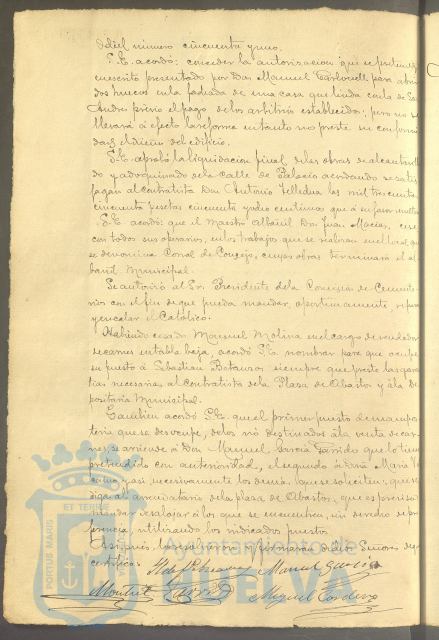 del número cincuenta y uno.
S.E. acordó: conceder la autorizacion que se pretende
en escrito presentado por Don Manuel Carbonell para abrir
dos huecos en la fachada de una casa que linda calle de San
Andres previo el pago de los arbitrios establecidos, pero no se
llevará á efecto la reforma en tanto no preste su conformi
dad el dueño del edificio.
S.E. aprobó la liquidacion final de las obras de alcantarilla
do y adoquinado de la calle de Palacio acordando se satis
fagan al contratista Don Antonio Tellechea las mil trescientas
cincuenta pesetas cincuenta y ocho centimos que á su favor resultan
S.E. acordó: que el Maestro Albañil Don Juan Macias, cese
con todos sus operarios, en los trabajos que se realizan en el local que
se denomina Corral de Concejo, cuyas obras terminará el al
bañil Municipal.
Se autorizó al Sr. Presidente de la Comision de Cemente
rios con el fin de que pueda mandar, oportunamente, reparar
y encalar el Católico.
Habiendo cesado Manuel Molina en el cargo de vendedor
de carnes en tabla baja, acordó S.E. nombrar para que ocupe
su puesto á Sebastian Botanas siempre que preste las garan
tias necesarias al Contratista de la Plaza de Abastos y á la De
positaría Municipal.
Tambien acordó S.E. que el primer puesto de mampos
teria que se desocupe, de los no destinados á la venta de car
nes, se arriende á Don Manuel Garcia Garrido que lo tiene
pretendido con anterioridad, el segundo á Doña Maria
y asi sucesivamente los demás que se soliciten; que se
diga al arrendatario de la plaza de Abastos, que es preciso
mandar desalojar á los que se encuentran, sin derecho ni pre
ferencia utilizando los indicados puestos.
Asi pues, la sesion
certifico:
Manuel Garcia
Montiel Garrido Miguel Cordero
PORTUS MARIS ET TERRE
Ayuntamiento de
HUELVA